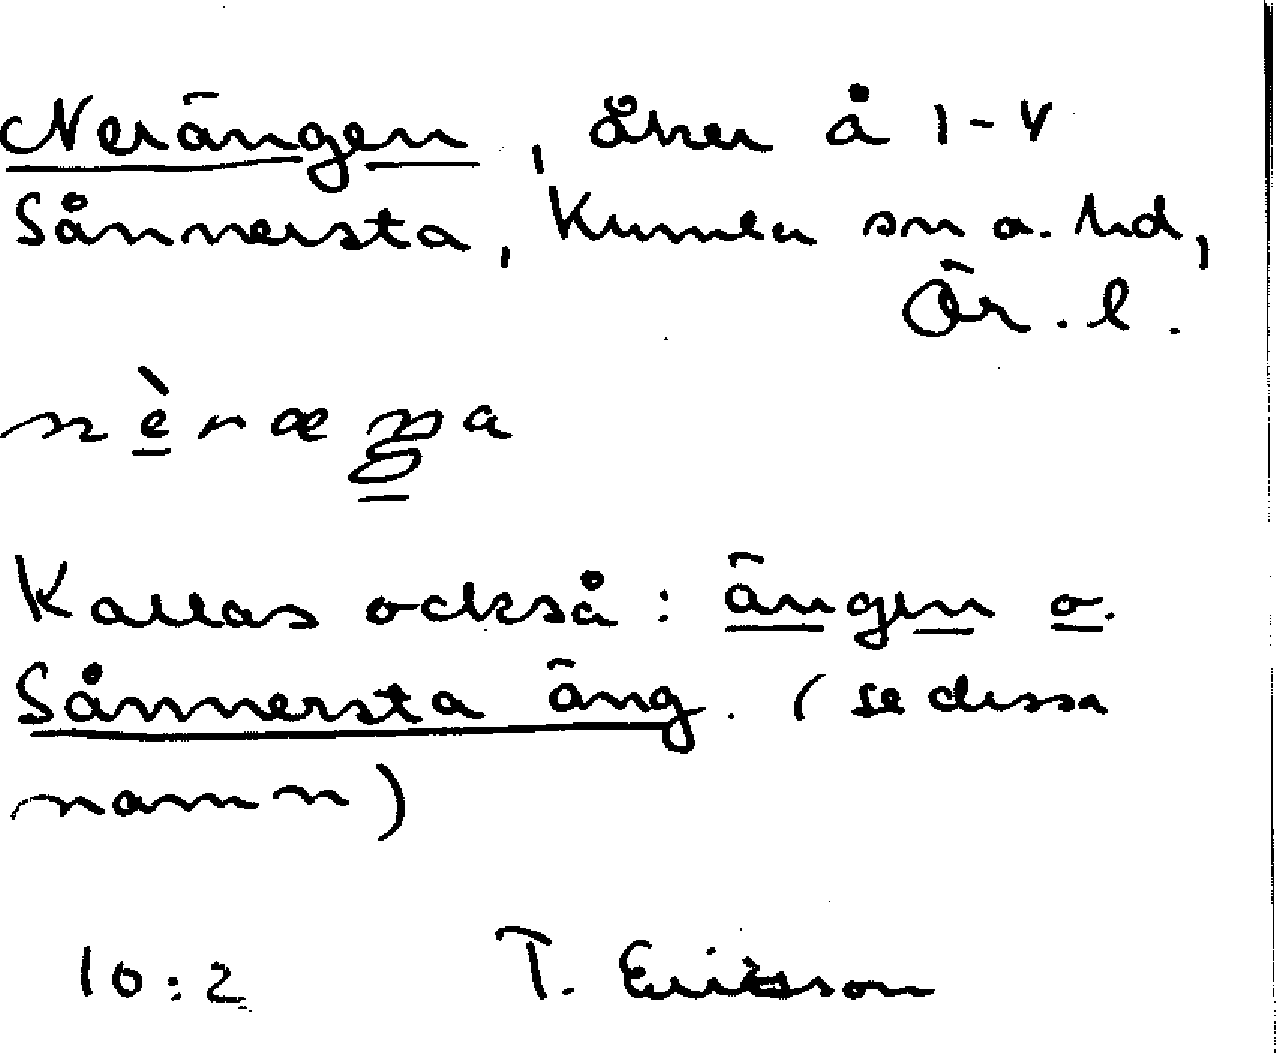 Nerängen, åker å 1-4
Sånnersta, Kumla sn o. hd,
Ör. l.
nèræŋa
Kallas också: ängen o.
Sånnersta äng. (se dessa
namn)
10:2 T. Ericsson